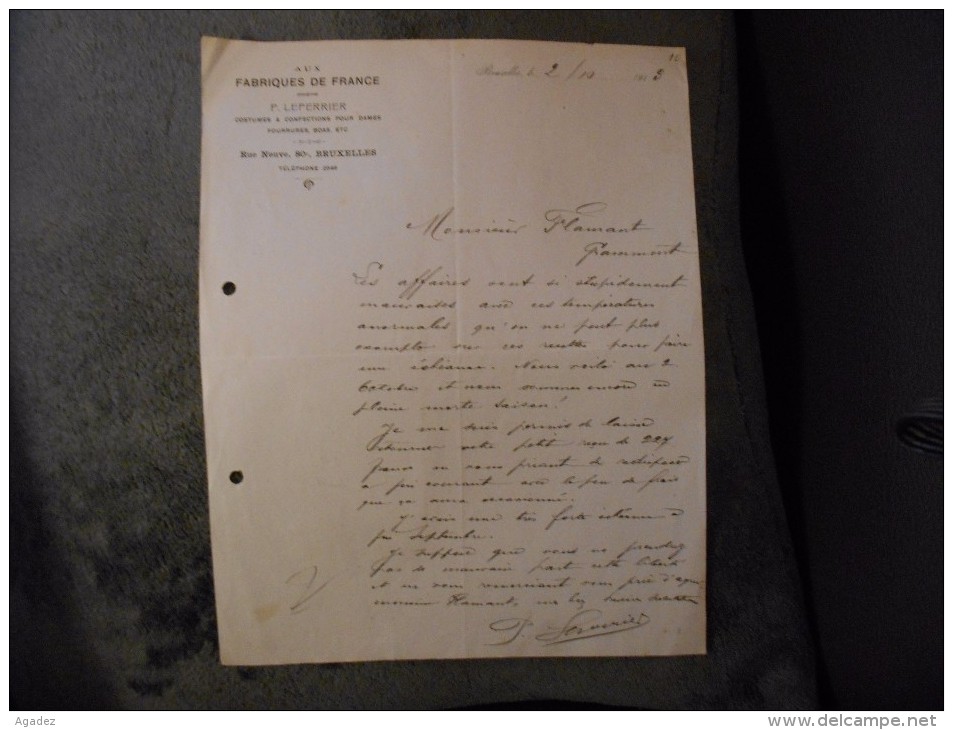 AUX
FABRIQUES DE FRANCE
P. LEPERRIER
COSTUMES & CONFECTIONS POUR DAMES
FOURRURES, BOAS, ETC
Rue Neuve, 80, BRUXELLES
TÉLÉPHONE 2548
Bruxelles, le 2/10 1913
Monsieur Flamant
Grammont
Les affaires sont si stupidement
mauvaises avec ces températures
anormales qu'on ne peut plus
compter sur ces recettes pour faire
une échéance. Nous voilà au 2
Octobre et nous sommes encore en
pleine morte saison!
Je me suis permis de laisser
retourner votre petit reçu de 227
francs en vous priant de
à fin courant avec le peu de frais
que ça aura occasionné.
J'avais une très forte échéance à
fin Septembre.
Je suppose que vous ne prendrez
pas de mauvaise part cette liberté
et en vous remerciant vous prie d'agréer
monsieur Flamant, mes
P. Leperrier
Agadez
www.delcampe.net